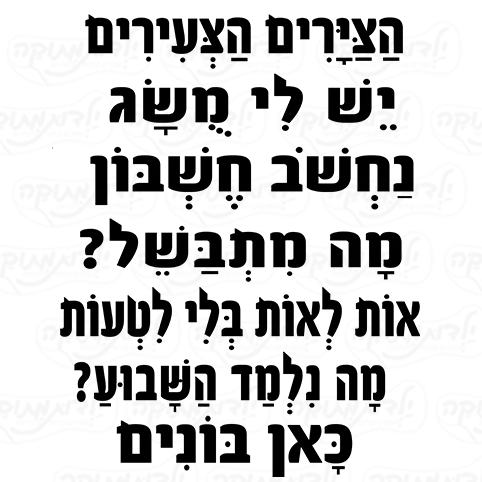 הַצַּיָּרִים הַצְּעִירִים
יֵשׁ לִי מֻשָּׂג
נַחְשֹׁב חֶשְׁבּוֹן
מָה מִתְבַּשֵּׁל?
אוֹת לְאוֹת בְּלִי לִטְעוֹת
מָה נִלְמַד הַשָּׁבוּעַ?
כָּאן בּוֹנִים